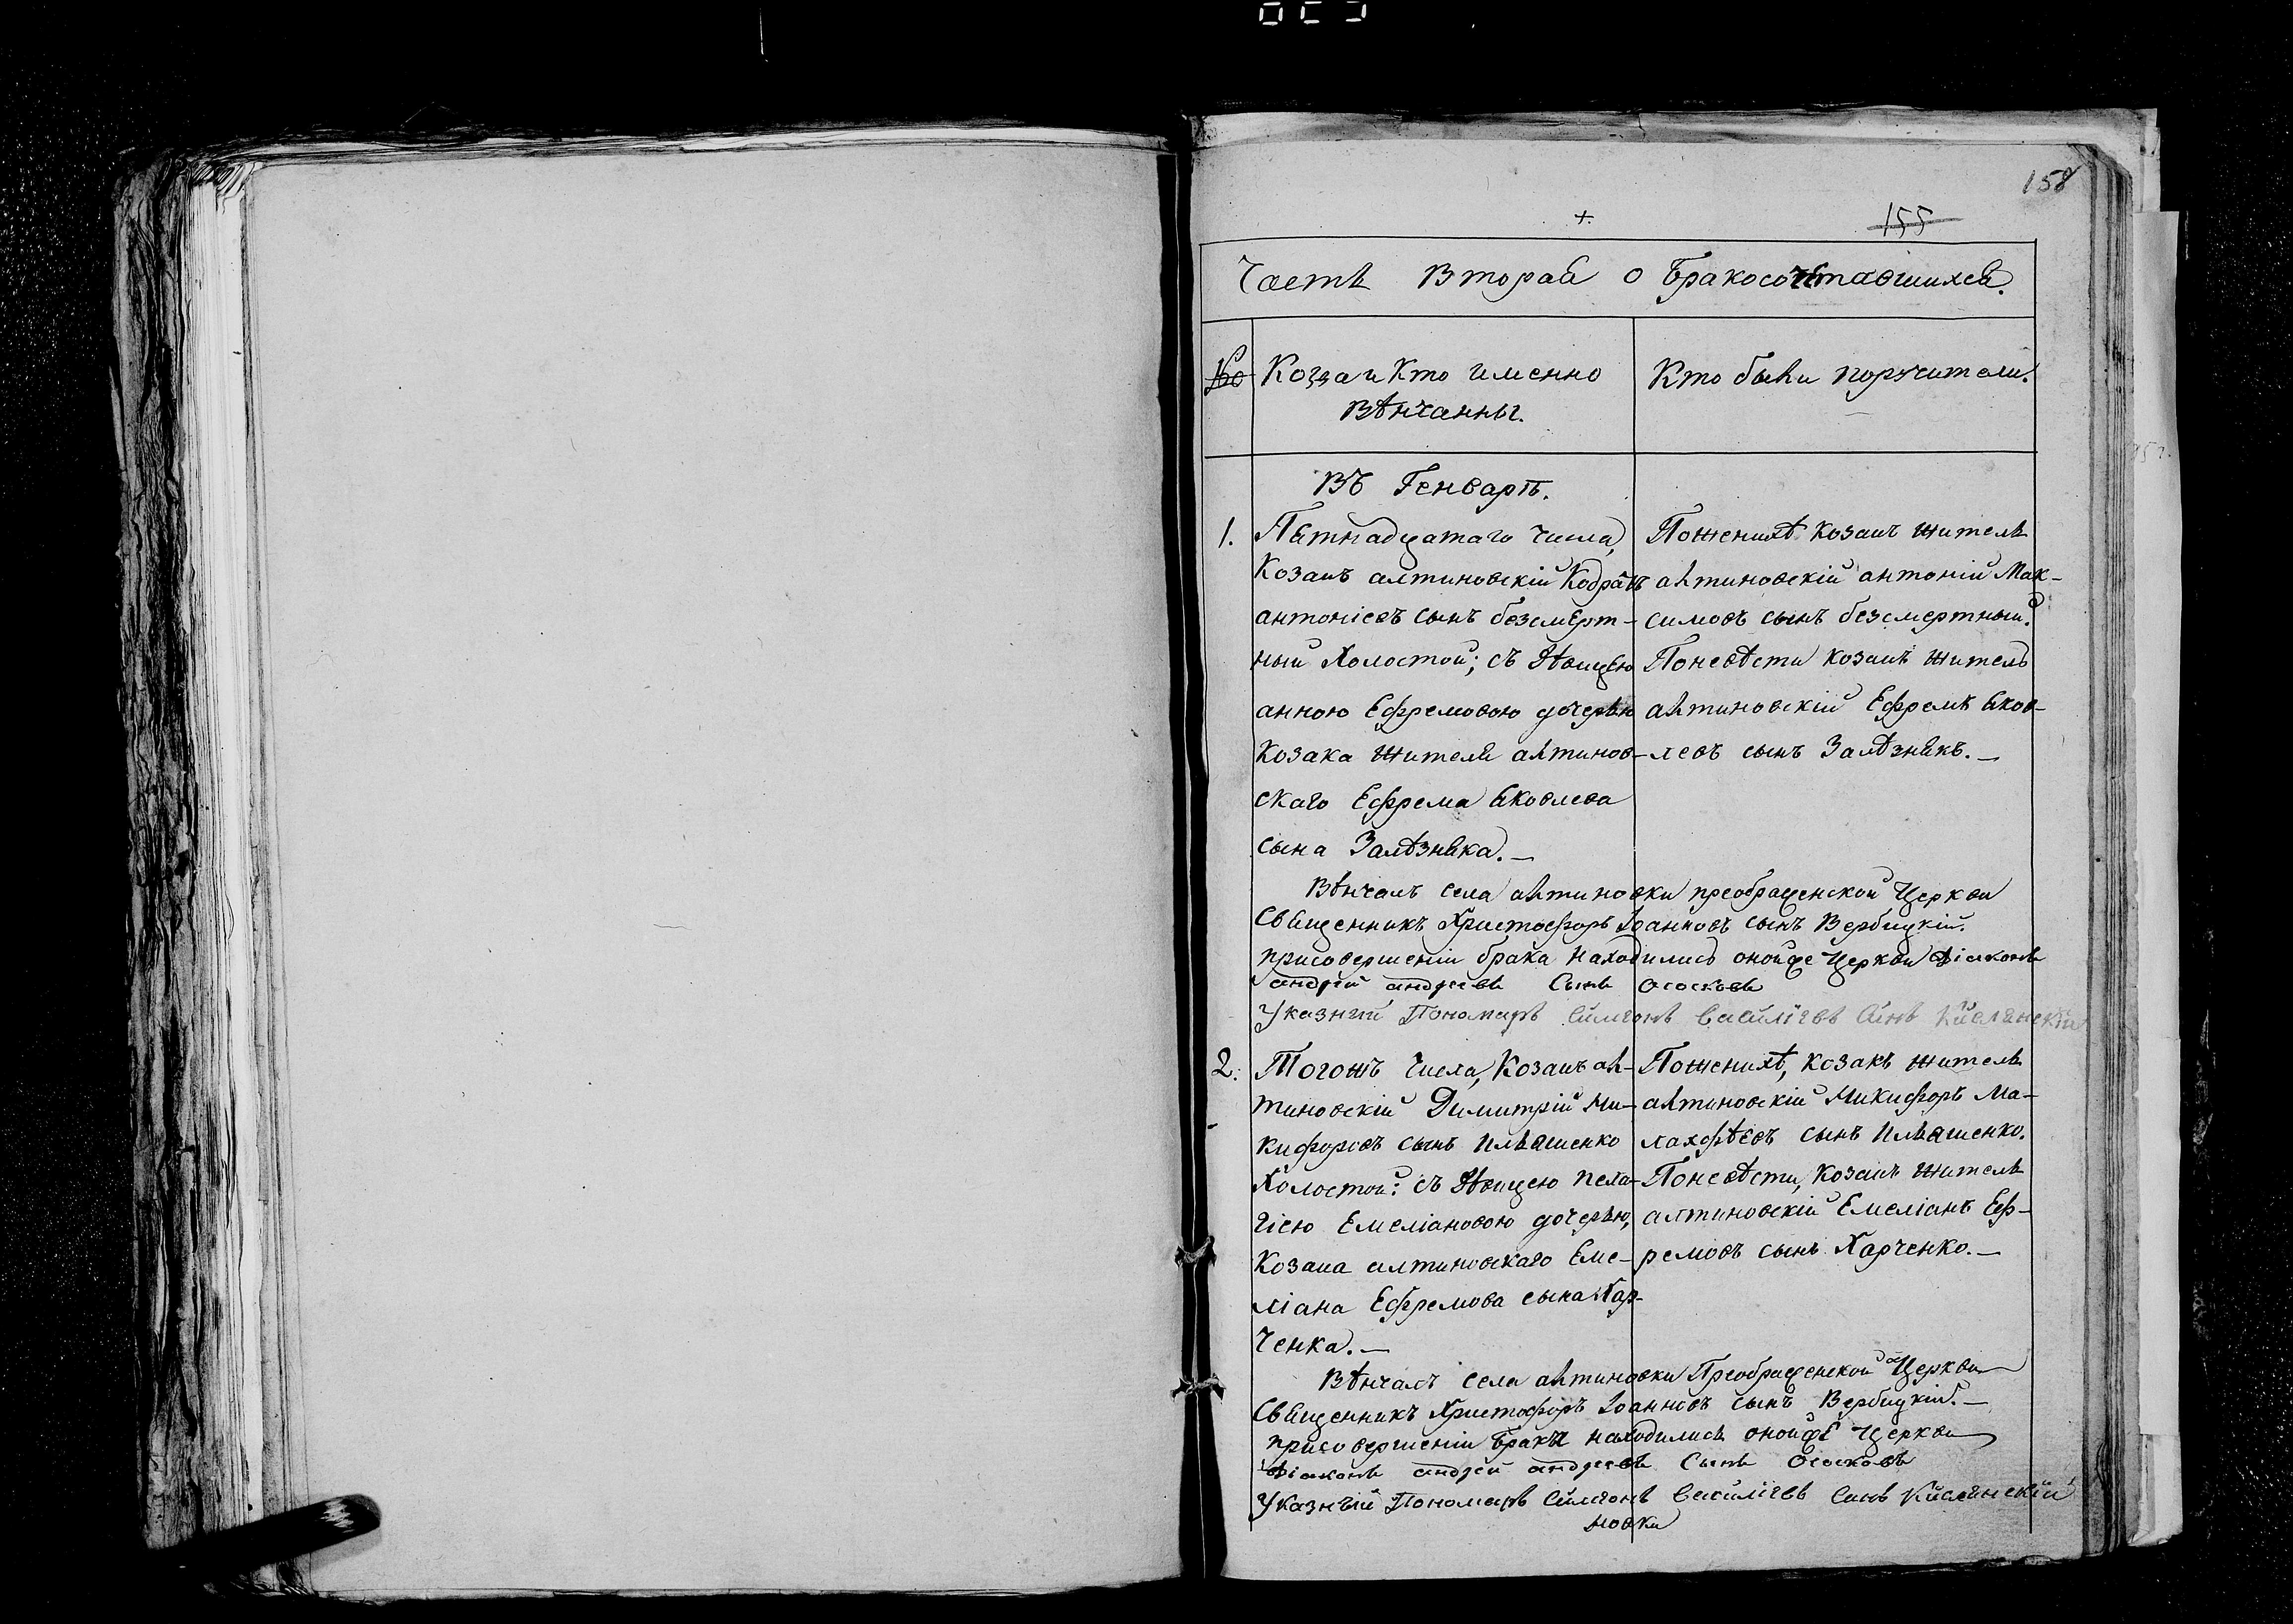 158
155
Часть Вторая о Бракосочетавшихся.
№ Когда и Кто именно
Вѣнчанны.
Кто были поручители.
Въ Генварѣ.
1. Пятнадцатаго числа,
Козакъ алтиновскій Кодратъ
антоніевъ сынъ безсмерт-
ный Холостой; съ дѣвицею
анною Ефремовою дочерью
Козака жителя алтинов-
скаго Ефрема Яковлева
сына Залѣзняка.—
Пожениху Козакъ житель
алтиновскій антоній Мак-
симовъ сынъ безсмертный.
Поневѣсти козакъ житель
алтиновскій Ефремъ Яков-
левъ сынъ Залѣзнякъ.—
Вѣнчалъ села алтиновки преображенской Церкви
Священникъ Христофоръ Іоанновъ сынъ Вербицкій.
присовершеніи брака находились онойже Церкви Діяконъ
андрей андреевъ Сынъ Ососковъ
Указный Пономарь Симеонъ Василіевъ Синъ
2. Тогожъ числа, Козакъ ал-
тиновскій Димитрій Ми-
кифоровъ сынъ Ильяшенко
Холостой: съ дѣвицею пела-
гіею Емеліановою дочерью,
Козака алтиновскаго Еме-
ліана Ефремова сына Хар-
ченка.—
Пожениху, козакъ житель
алтиновскій Микифоръ Ма-
лахфѣевъ сынъ Ильяшенко.
Поневѣсти, Козакъ житель
алтиновскій Емеліанъ Еф-
ремовъ сынъ Харченко.—
Вѣнчалъ села алтиновки Преображенской Церкви
Священникъ Христофоръ Іоанновъ сынъ Вербицкій.—
присовершеніи брака находились онойже Церкви
Діаконъ андрей андреевъ Сынъ Ососковъ
Указный Пономарь Симеонъ Василіевъ Синъ